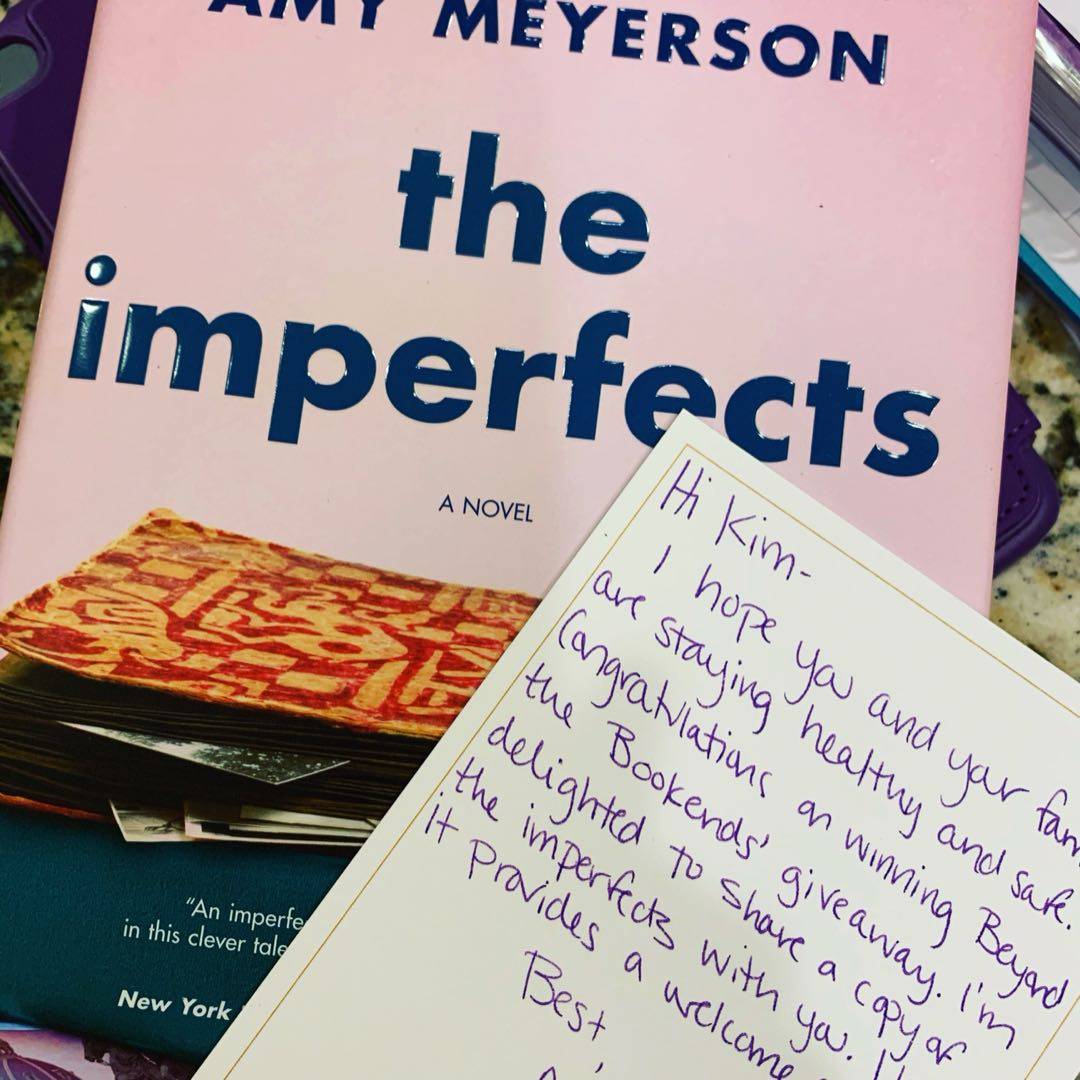 AMY MEYERSON
the
imperfects
A NOVEL
"An imperfe
in this clever tale
New York
Hi Kim-
I hope you and your fam
are staying healthy and safe.
Congratulations on winning Beyond
the Bookends' giveaway. I'm
delighted to share a copy of
the imperfects with you. I
it provides a welcome
Best,